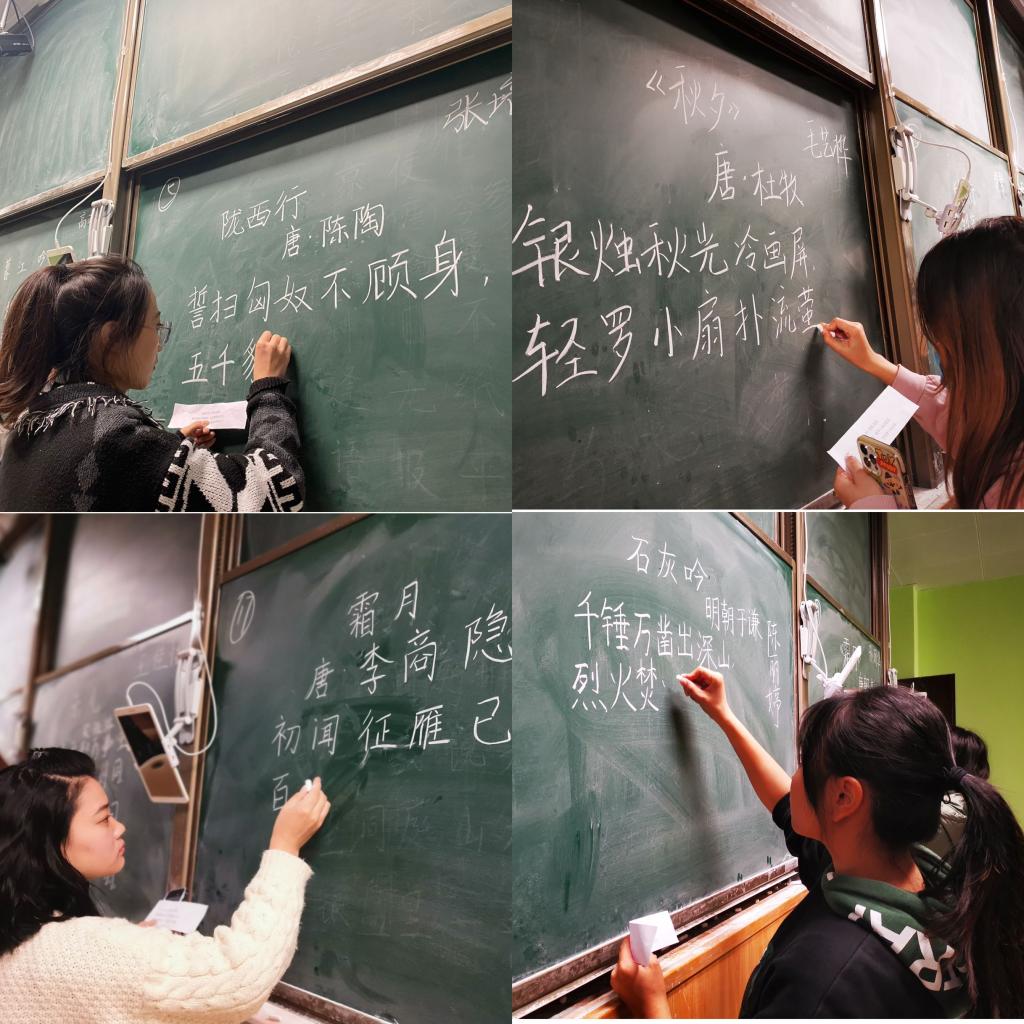 张
5
陇西行
唐·陈陶
誓扫匈奴不顾身,
五千
《秋夕》
毛艺桦
唐·杜牧
银烛秋光冷画屏,
轻罗小扇扑流萤
11
霜月
唐·李商隐
初闻征雁已
百
石灰吟
明朝于谦
陈丽婷
千锤万凿出深山
烈火焚